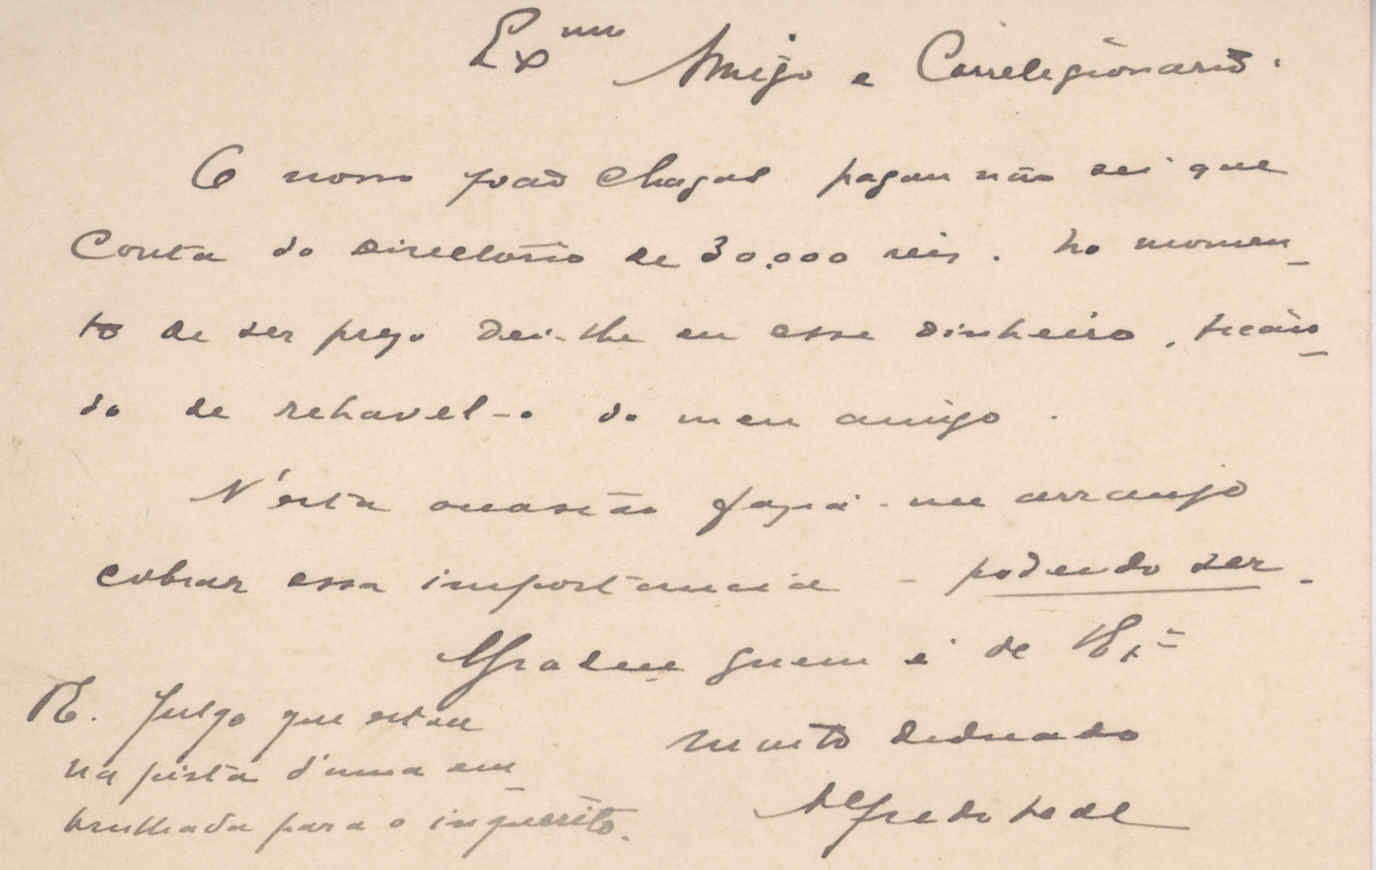 Ex.mo Amigo e Correligionario.
O nosso João Chagas pagou não sei que
conta do Directorio de 30.000 reis. No momen_
to de ser preso dei-lhe eu esse dinheiro, fican_
do de rehavel-o do meu amigo.
N'esta occasião fazia-me arranjo
cobrar essa importancia - podendo ser.
quem é de V. Ex.ª
muito dedicado
Alfredo Leal
P.E. Julgo que estou
na pista d'uma em_
brulhada para o inquerito.